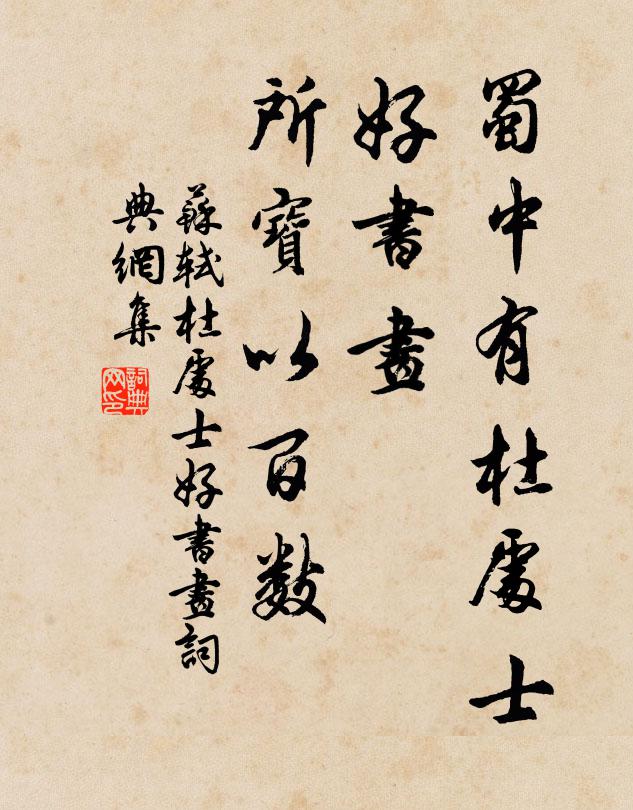 蜀中有杜處士
好書畫
所寶以百數
蘇軾杜處士好書畫詞
典網集
詞典網印